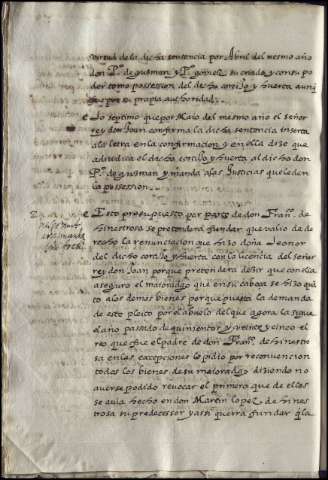 virtud de la dicha sentencia por Abril del mesmo año
don P.º de guzman y P.º gomez su criado y con su po
der tomo possession del dicho cortijo y huerta aunq̃
dizen q̃ de su propia authoridad.
Lo septimo que por Maio del mesmo año el señor
rey don Juan confirma la dicha sentencia inserta
a la letra en la confirmacion y en ella dize que
adiudica el dicho cortijo y huerta al dicho don
P.º de guzman y manda a las Justicias que le den
la possession.
Esto presupuesto por parte de don Fran.co de
hinestrosa se pretendera fundar que valio de de
recho la renunciacion que hizo doña Leonor
del dicho cortijo y huerta con la licencia del señor
rey don Juan porque pretendera dezir que con ella
aseguro el maioradgo que en su cabeça se hizo qua
to a los demas bienes porque puesta la demanda
de este pleito por el abuelo del que agora la sigue
el año pasado de quinientos y veinte y cinco el
reo que fue el padre de don Fran.co de hinestro
sa en las excepciones lo pidio por reconvencion
todos los bienes de su maioradgo diziendo no
averse podido revocar el primero que de ellos
se avia hecho en don Martin Lopez de hines
trosa su predecessor y assi querra fundar q̃ la